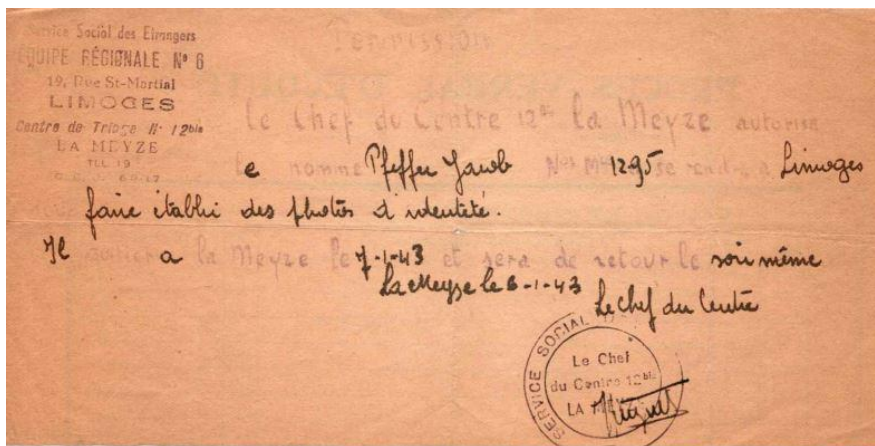 Service Social des Etrangers
EQUIPE RÉGIONALE Nº 6
19, Rue St-Martial
LIMOGES
Centre de Triage Nº 12bis
LA MEYZE
TEL 19
Permission
le Chef du Centre 12bis la Meyze autorise
le nommé Pfeffer Jacob Nos Mle 1295 se rendre à Limoges
faire établi des photos d'identité.
Il quittera la Meyze le 7-1-43 et sera de retour le soir même
La Meyze le 6-1-43
Le Chef du Centre
SERVICE SOCIAL
Le Chef
du Centre 12bis
LA MEYZE